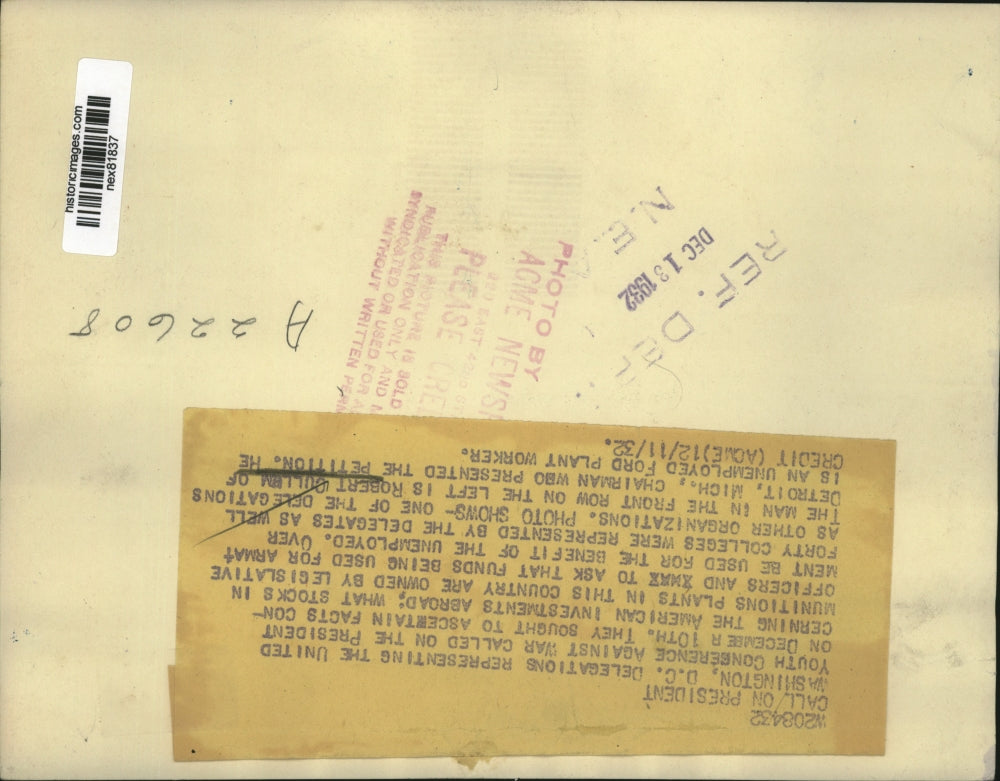 historicimages.com
nex81837
N.E.
REF. DEPT.
DEC 13 1932
PHOTO BY
ACME NEWS
220 EAST 42ND ST
PLEASE CRE
THIS PICTURE IS SOLD
PUBLICATION ONLY AND
SYNDICATED OR USED FOR A
WITHOUT WRITTEN PERM
A 22608
W208432
CALL ON PRESIDENT
WASHINGTON, D.C. DELEGATIONS REPRESENTING THE UNITED
YOUTH CONFERENCE AGAINST WAR CALLED ON THE PRESIDENT
ON DECEMBER 10TH. THEY SOUGHT TO ASCERTAIN FACTS CON-
CERNING THE AMERICAN INVESTMENTS ABROAD; WHAT STOCKS IN
MUNITIONS PLANTS IN THIS COUNTRY ARE OWNED BY LEGISLATIVE
OFFICERS AND TO ASK THAT FUNDS BEING USED FOR ARMA-
MENT BE USED FOR THE BENEFIT OF THE UNEMPLOYED. OVER
FORTY COLLEGES WERE REPRESENTED BY THE DELEGATES AS WELL
AS OTHER ORGANIZATIONS. PHOTO SHOWS- ONE OF THE DELEGATIONS
THE MAN IN THE FRONT ROW ON THE LEFT IS ROBERT CULLEM OF
DETROIT, MICH., CHAIRMAN WHO PRESENTED THE PETITION. HE
IS AN UNEMPLOYED FORD PLANT WORKER.
CREDIT (ACME)12/11/32.